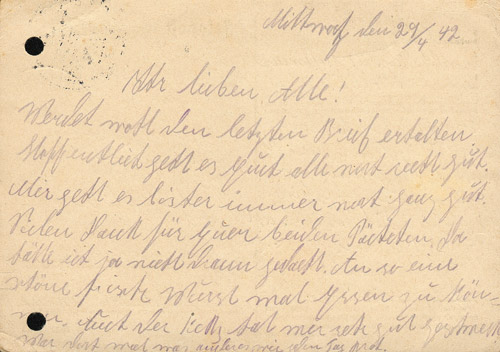 Mittwoch den 29/4 42
Ihr lieben Alle!
Werdet wohl den letzten Brief erhalten
Hoffentlich geht es Euch alle noch recht gut.
Mir geht es bister immer noch ganz gut.
Vielen Dank für Euer beiden Päckchen, Da
hätte ich ja nicht daran gedacht. An so eine
schöne frische Wurst mal Essen zu kön-
nen. Auch der hat mir sehr gut geschmeckt
War doch mal was anderes wie den Tag